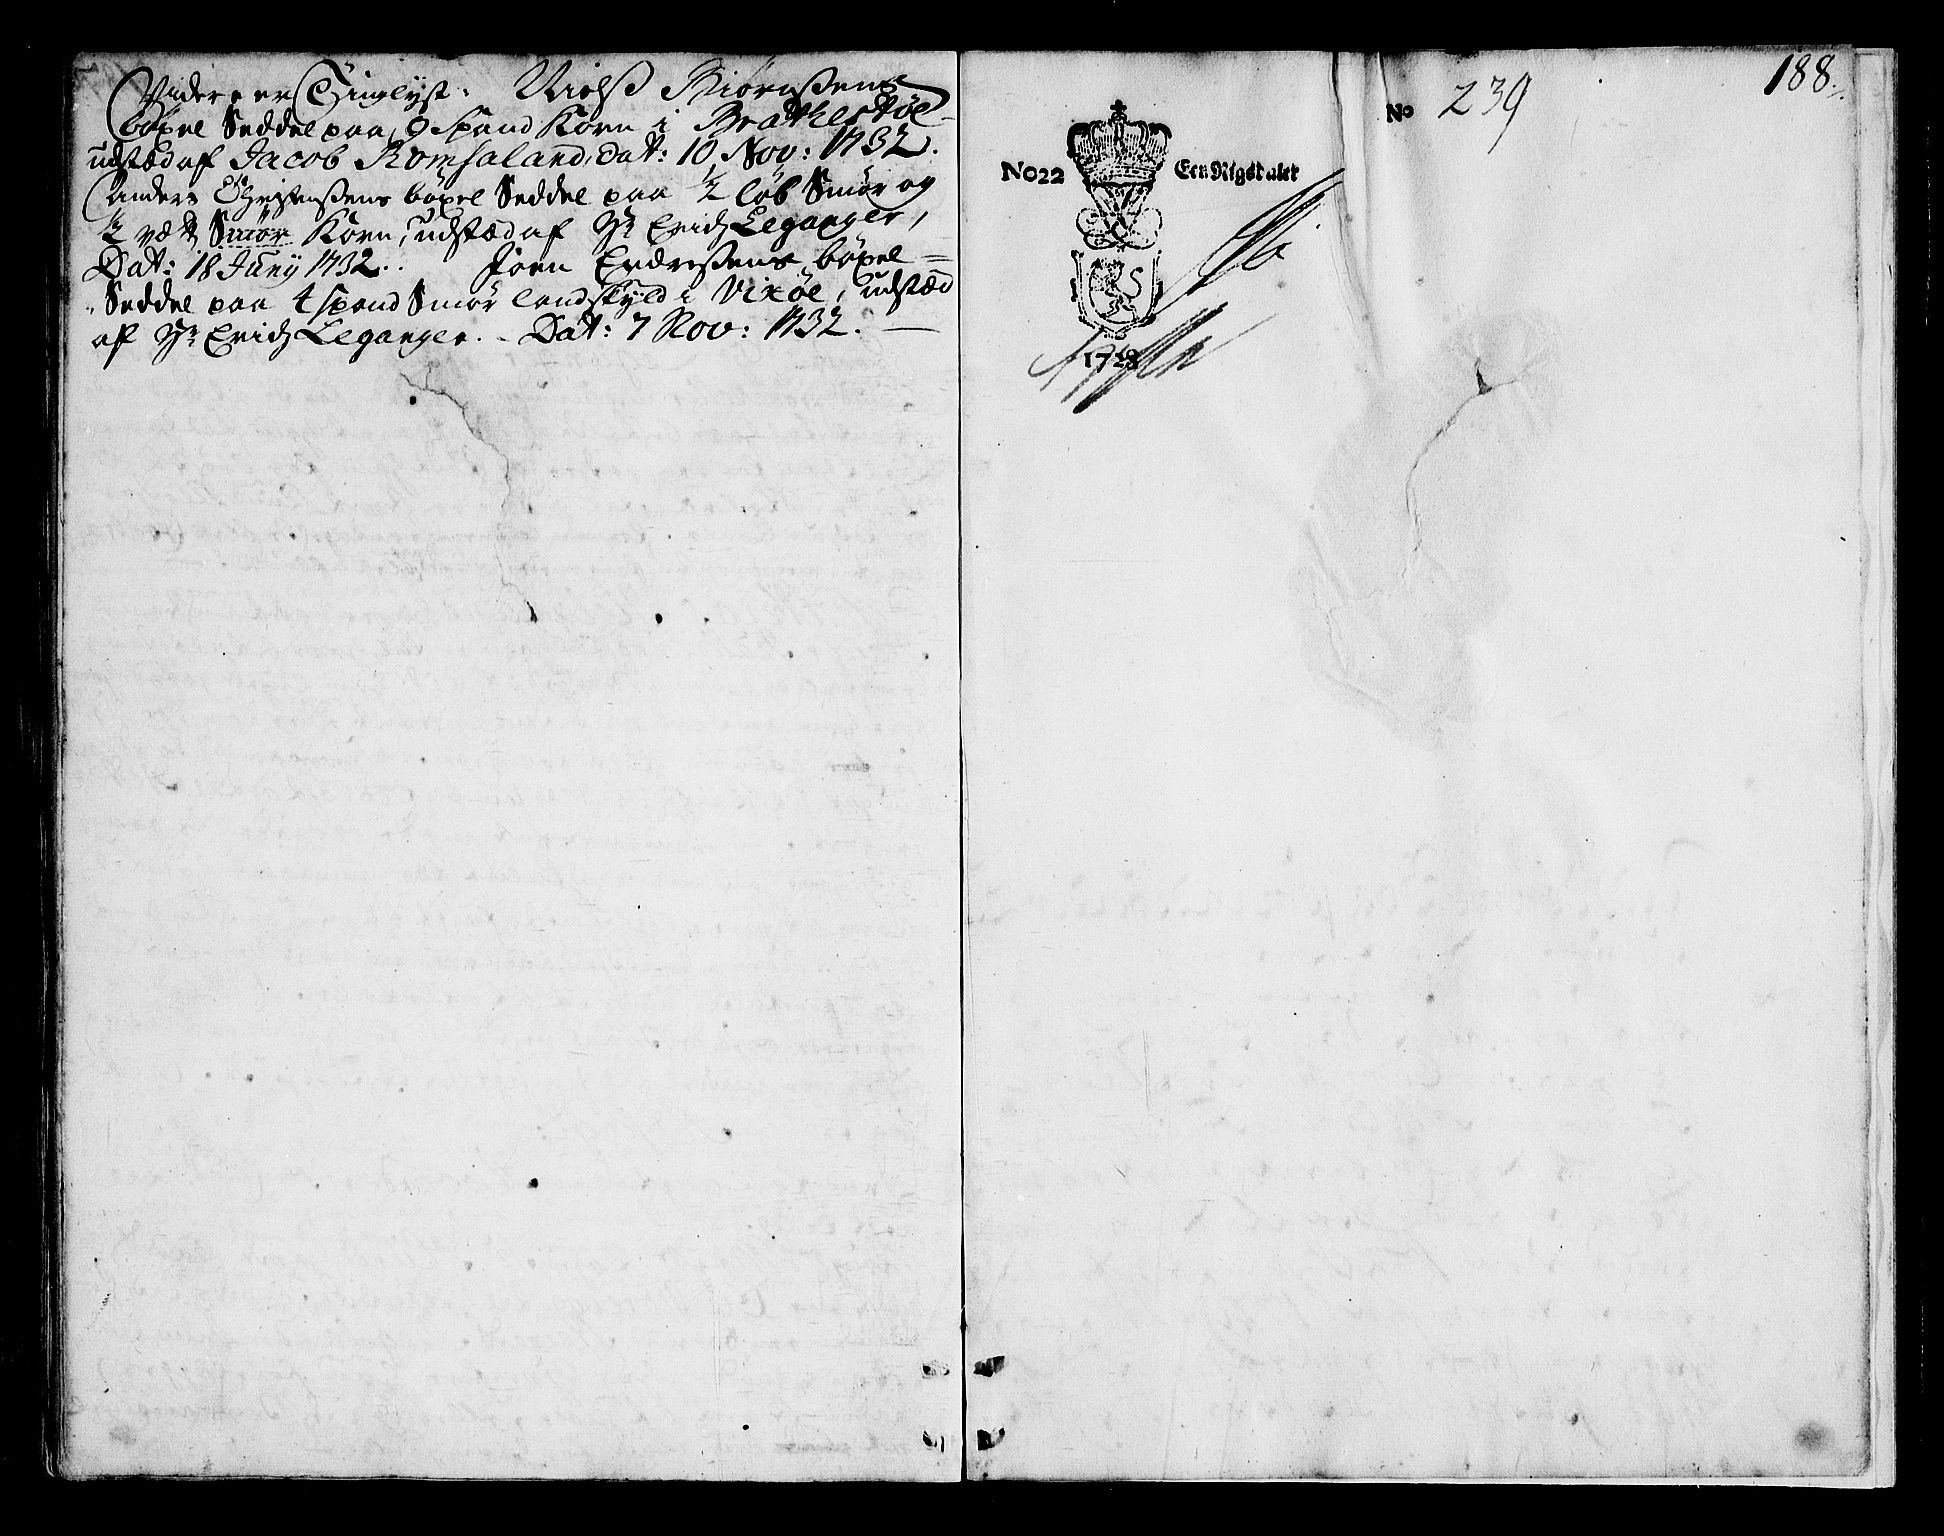 Videre er Tinglyst. Niels Biørnssens
böxel Seddel paa 9 Spand Korn i Brathestøe
udstæd af Jacob Romsaland, dat: 10 Nov: 1732.
Anders Christensens böxel Seddel paa ½ löb Smör og
½ væt Smör Korn, udstæd af Hr Erich Leganger,
Dat: 18 Junij 1732. Joen Endressens böxel =
Seddel paa 4 spand Smör landskyld i Vixöe, udstæd
af Hr Erich Leganger. Dat: 7 Nov: 1732.
188.
No 239
No 22 Een Rigsdaler
1728